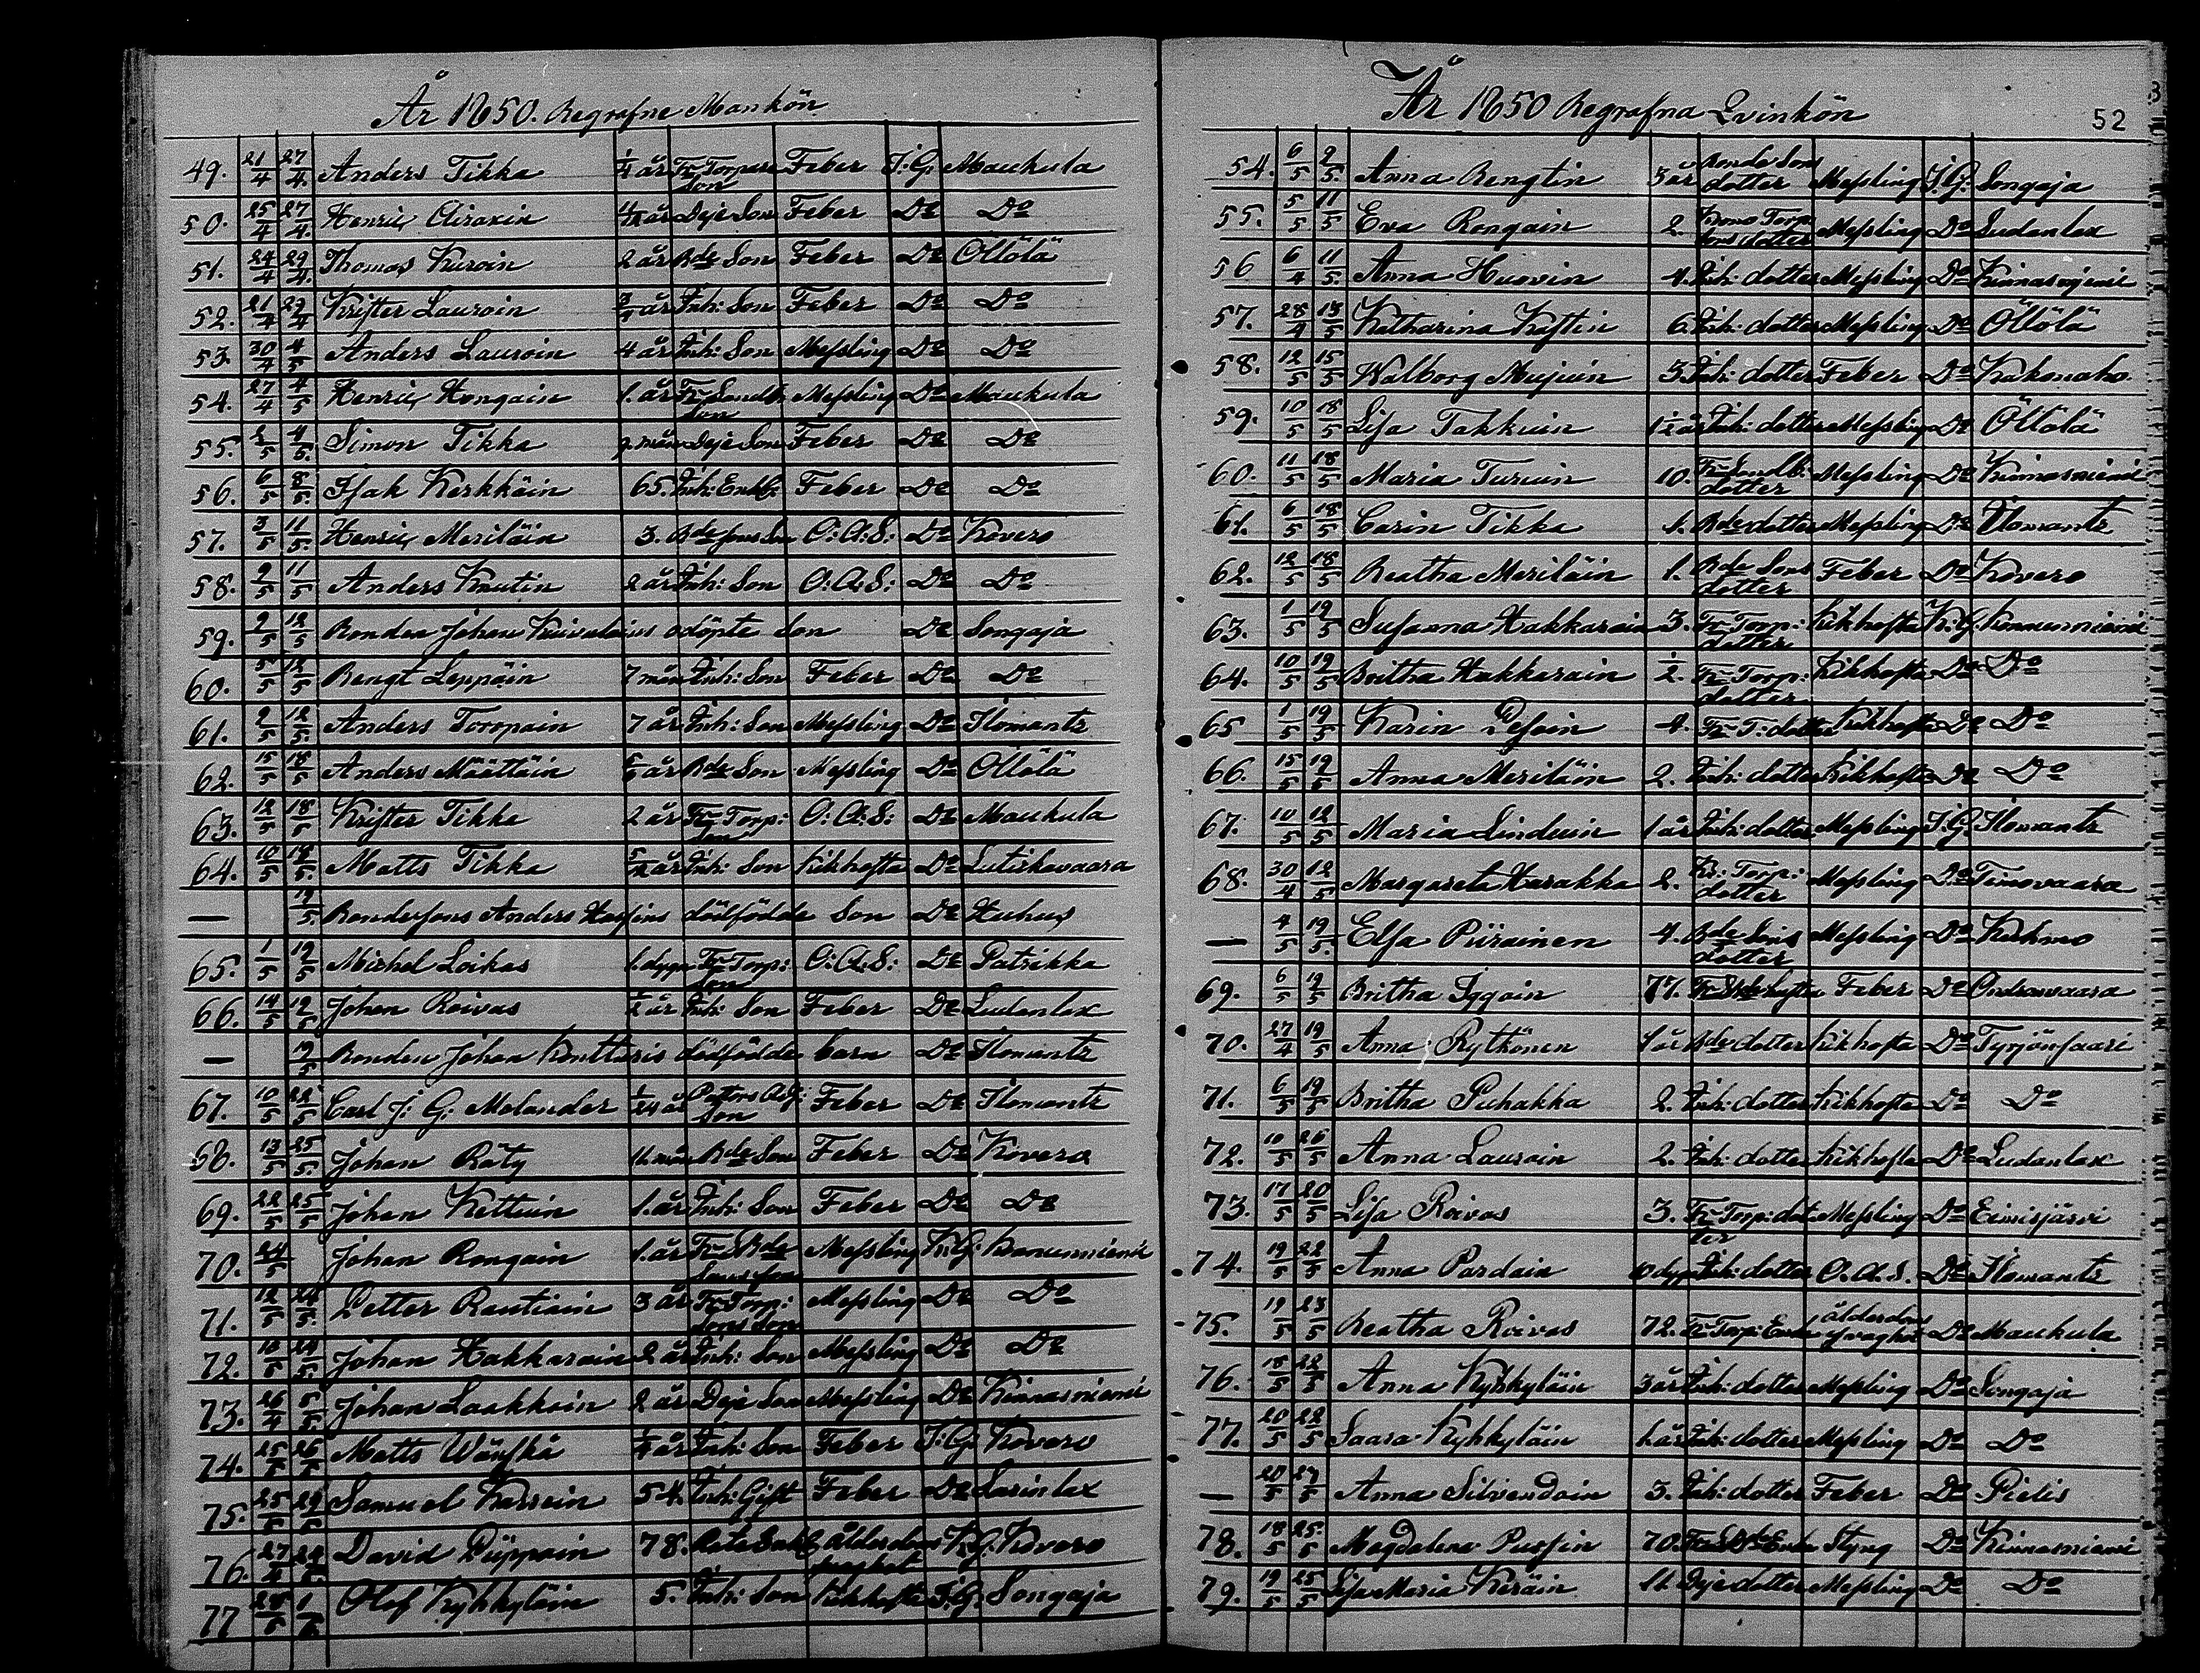 År 1850. Begrafne Mankön
49. 21/4 27/4. Anders Tikka 1/4 år Fr Torpare son Feber J:G: Maukula
50. 25/4 27/4. Henric Airaxin år Deje Son Feber Do Do
51. 24/4 29/4. Thomas Kuroin 2 år Bde Son Feber Do Öllölä
52. 21/4 29/4 Krister Lauroin 3/4 år Inh: Son Feber Do Do
53. 30/4 4/5 Anders Lauroin 4 år Inh: Son Messling Do Do
54. 27/4 4/5 Henric Hongain 1. år Son Messling Do Maukula
55. 2/5 4/5. Simon Tikka 9 mån Deje Son Feber Do Do
56. 6/5 8/5. Isak Kerkkäin 65. Inh: Enkl: Feber Do Do
57. 3/5 11/5. Henric Meriläin 3. Bde Sons Son O:A:S: Do Kovero
58. 9/5 11/5 Anders Knutin 2 år Inh: Son O:A:S: Do Do
59. 9/5 12/5 Bonden Johan Kuivalains odöpte Son Do Songaja
60. 5/5 12/5 Bengt Leppäin 7 mån Inh: Son Feber Do Do
61. 9/5 12/5. Anders Toropain 7 år Inh: Son Messling Do Ilomantz
62. 15/5 18/5 Anders Määttäin år Bde Son Messling Do Öllölä
63. 12/5 18/5 Krister Tikka 2 år Fr Torp: Son O:A:S: Do Maukula
64. 10/5 18/5. Matts Tikka år Inh: Son Kikhosta Do Lutiskavaara
— 19/5. Bondesons Anders dödfödde Son Do Huhus
65. 1/5 19/5 Michel Loikas 1. dygn Fr Torp: son O:A:S: Do Patrikka
66. 14/5 19/5 Johan Roivas 1/2 år Inh: Son Feber Do Ludanlax
— 19/5 Bonden Johan Konttaris dödfödde barn Do Ilomantz
67. 10/5 22/5 Carl J: G: Molander 1/24 år Pastors Adj: Son Feber Do Ilomantz
68. 13/5 25/5 Johan Räty 11 mån Bde Son Feber Do Kovero
69. 22/5 25/5 Johan Kettuin 1. år Inh: Son Feber Do Do
70. 24/5 Johan Rongain 1. år Fr Bde Sons son Messling K:G:
71. 12/5 24/5. Petter Rautiain 3 år Fr Torp: Sons Son Messling Do Do
72. 24/5. Johan Hakkarain 2 år Inh: Son Messling Do Do
73. 26/4 5/5. Johan Laakkoin 2 år Deje Son Messling Do Kinnasniemi
74. 25/5 26/5 Matts Wänskä år Inh: Son Feber J:G: Kovero
75. 25/5 29/5 Samuel Karrein 54. Inh: Gift Feber Do Sarinlax
76. 27/4 David Piippoin 78. ålderdoms svaghet K:G: Kovero
77 28/5 Olof Kyhkyläin 5. Inh: Son Kikhosta J:G: Songaja
År 1850 Begrafna Qvinkön
52
54. 6/5 9/5 Anna Bengtin 3 år Bonde Sons dotter Messling J:G: Songaja
55. 5/5 11/5 Eva Rongain 2. Torp: sons dotter Messling Do Ludanlax
56 6/4 11/5. Anna Huovin 4. Inh: dotter Messling Do Kinnasniemi
57. 28/4 13/5 Katharina Kostin 6. Inh: dotter Messling Do Öllölä
58. 12/5 15/5 Walborg Mujuin 3. Inh: dotter Feber Do Kakonaho.
59. 10/5 18/5 Lisa Takkuin 1 1/2 år Inh: dotter Messling Do Öllölä
60. 11/5 18/5 Maria Turuin 10. dotter Messling Do Kinnasniemi
61. 6/5 18/5 Carin Tikka 1. Bde dotter Messling Do Ilomantz
62. 12/5 18/5 Beatha Meriläin 1. Bde Sons dotter Feber Do Kovero
63. 1/5 19/5 Susanna Hakkarain 3. Fr Torp: dotter Kikhosta K:G. Kinnasniemi
64. 10/5 19/5 Britha Hakkarain 1/2. Fr Torp: dotter Kikhosta Do Do
65 1/5 19/5 Karin Pesoin 4. Fr T: dotter Kikhosta Do Do
66. 15/5 19/5 Anna Meriläin 2. Inh: dotter Kikhosta Do Do
67. 10/5 12/5 Maria Linduin 1 år Inh: dotter Messling J:G: Ilomantz
68. 30/4 12/5 Margareta Harakka 2. Kr: Torp: dotter Messling Do Timovaara
— 4/5 19/5. Elsa Piirainen 4. Bde Sons dotter Messling Do Kuhmo
69. 6/5 19/5 Britha Iggoin 77. Feber Do
70. 27/4 19/5 Anna Rytkönen 1 år Bde dotter Kikhosta Do Tyrjänsaari
71. 6/5 19/5 Britha Puhakka 2. Inh: dotter Kikhosta Do Do
72. 10/5 26/5 Anna Lauroin 2. Inh: dotter Kikhosta Do Ludanlax
73. 17/5 20/5 Lisa Roivas 3. Fr Torp: dotter Messling Do Eimisjärvi
74. 19/5 22/5 Anna Pardain 10 dygn Inh: dotter O.A.S. Do Ilomantz
75. 19/5 23/5 Beatha Roivas 72. Fr Torp: Enka ålderdoms svaghet Do Maukula
76. 18/5 22/5 Anna Kyhkyläin 3 år Inh: dotter Messling Do Songaja
77. 20/5 22/5 Saara Kyhkyläin 1. år Inh: dotter Messling Do Do
— 20/5 27/5 Anna Silvendoin 3. Inh: dotter Feber Do Pielis
78. 18/5 25/5 Magdalena Pussin 70. Enka Styng Do Kinnasniemi
79. 19/5 25/5 Lisa Maria Keräin 11. Deje dotter Messling Do Do